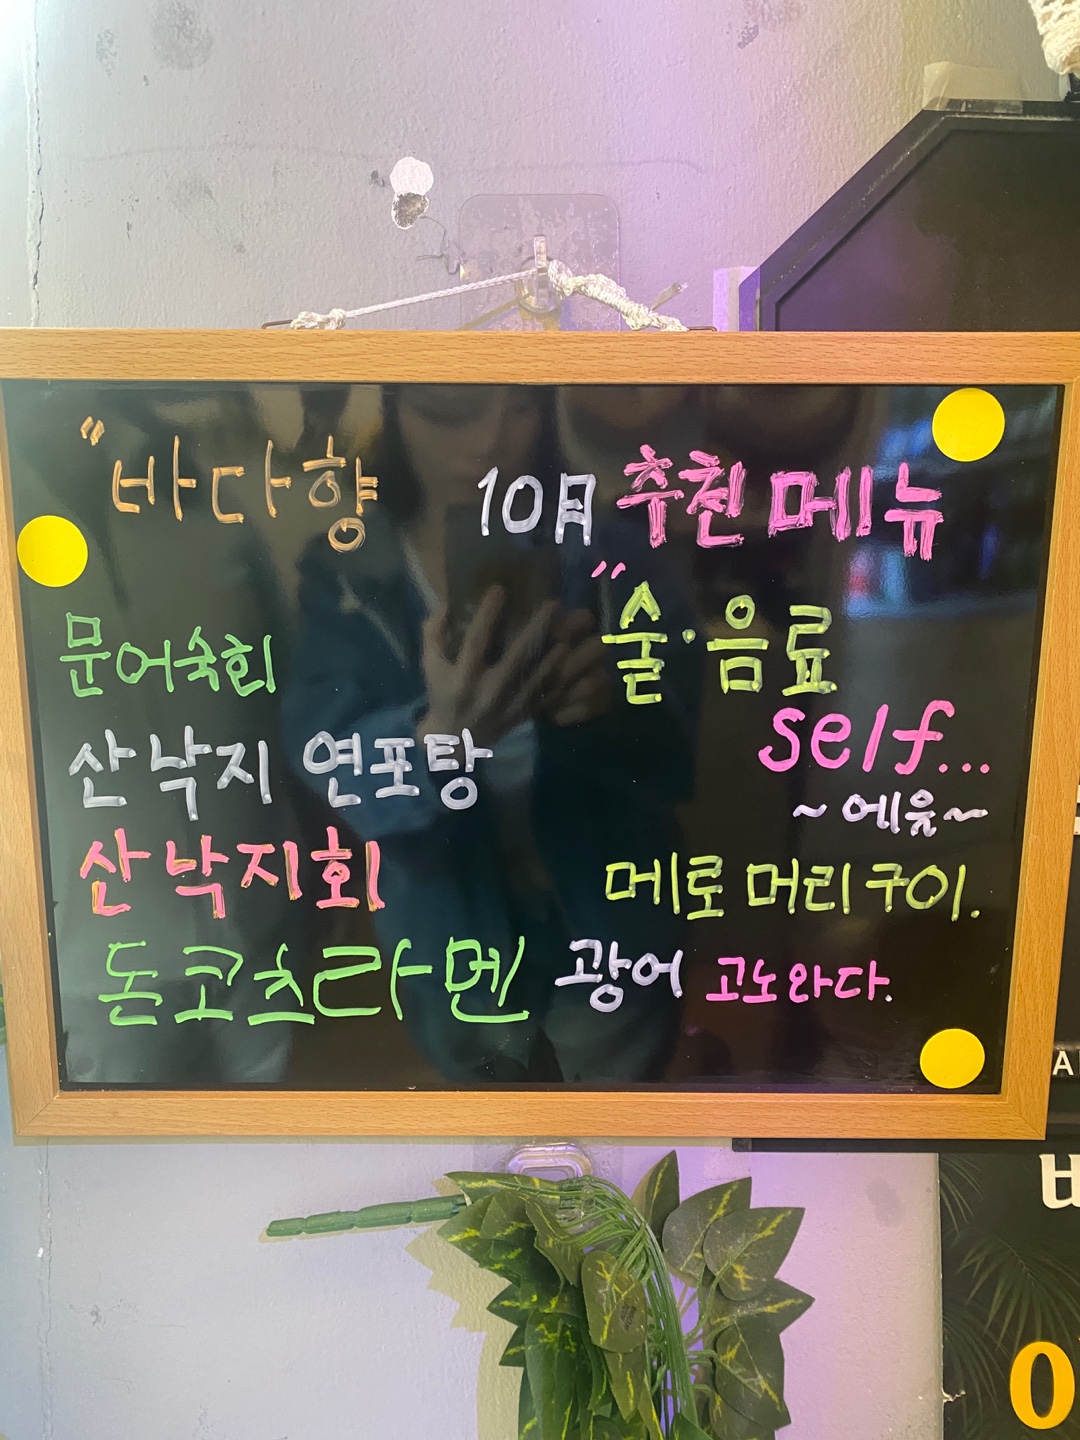 "바다향
10月 추천 메뉴"
문어숙회
산낙지 연포탕
산낙지회
돈코츠라멘
술·음료
self...
~에윳~
메로 머리구이.
광어 고노와다.
A
0